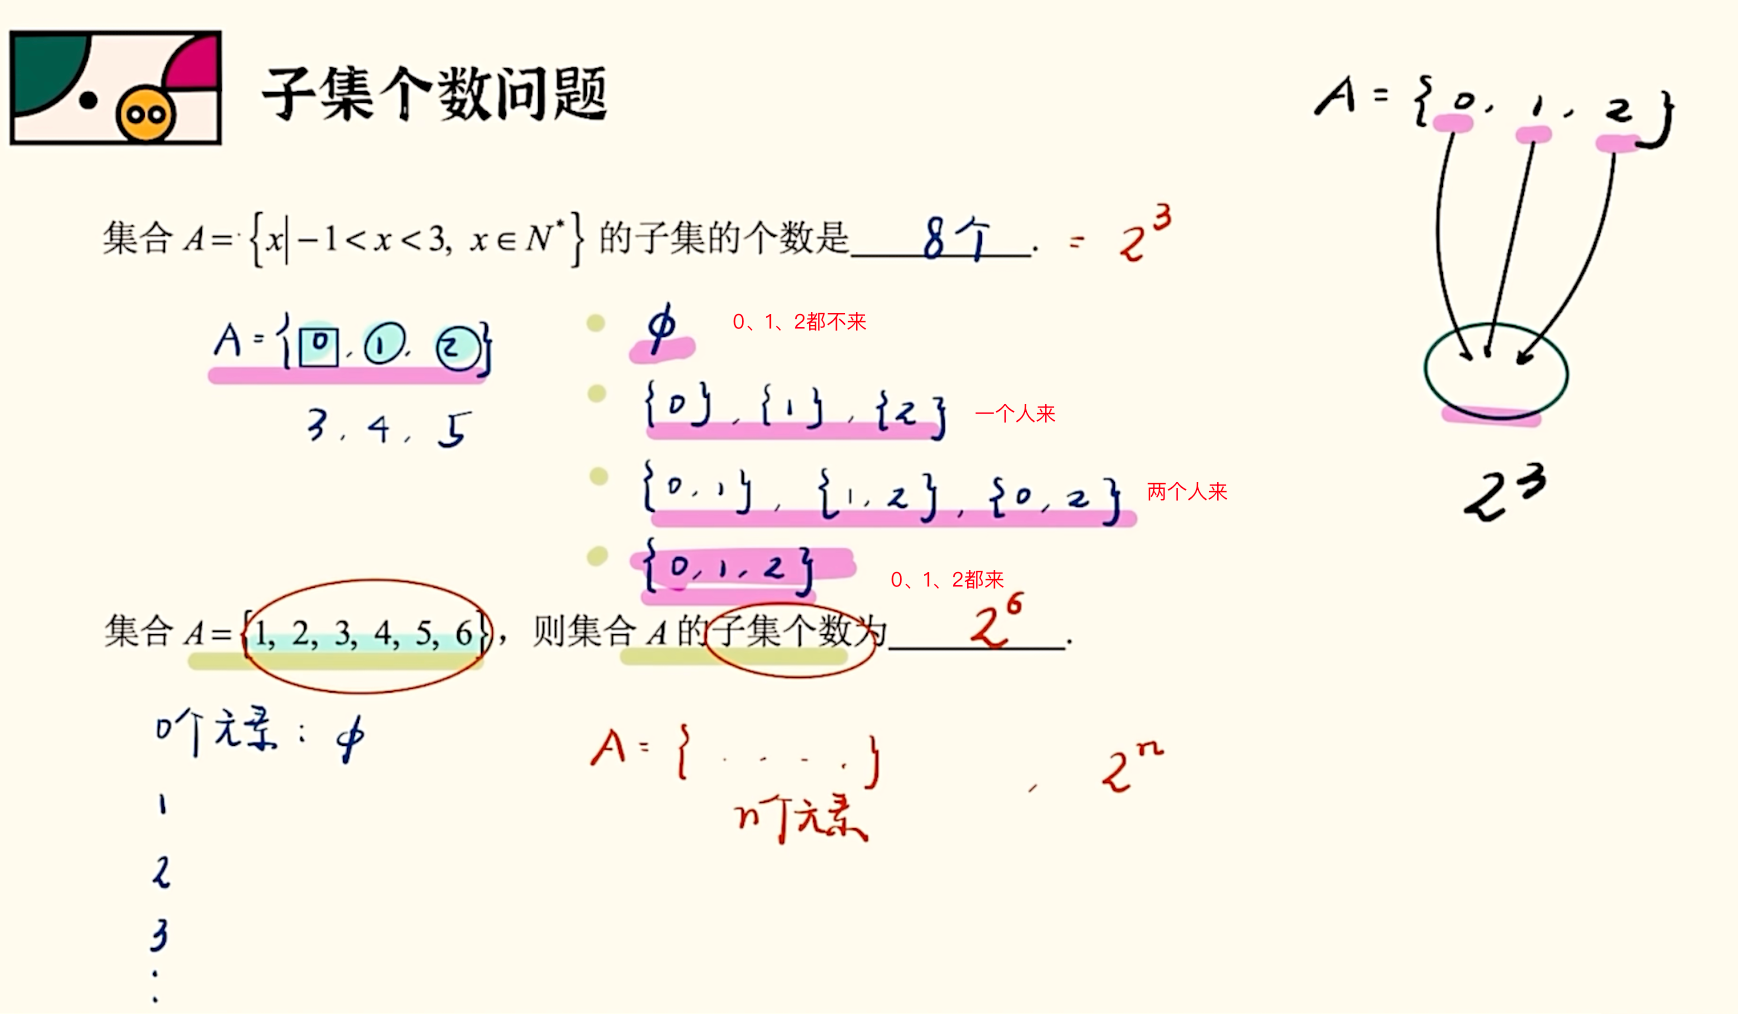 子集个数问题
A = {0, 1, 2}
集合 A = {x| -1 < x < 3, x ∈ N*} 的子集的个数是 8个 . = 2³
A = {0, 1, 2}
3, 4, 5
ϕ 0、1、2都不来
{0}, {1}, {2} 一个人来
{0, 1}, {1, 2}, {0, 2} 两个人来
2³
{0, 1, 2} 0、1、2都来
集合 A = {1, 2, 3, 4, 5, 6}，则集合 A 的子集个数为 2⁶ .
0个元素：ϕ
1
2
3
⋮
A = {. . . .} , 2ⁿ
n个元素